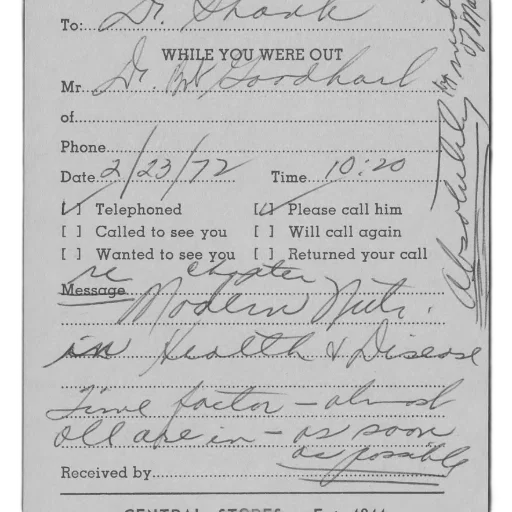 To: Dr. Shank
WHILE YOU WERE OUT
Mr. Dr. Goodhart
of
Phone
Date 2/23/72 Time 10:20
[✓] Telephoned [✓] Please call him
[ ] Called to see you [ ] Will call again
[ ] Wanted to see you [ ] Returned your call
re chapter
Message Modern Nutr.
in Health & Disease
Time factor – almost
all are in – as soon
as possible
Received by
CENTRAL STORES
Absolutely by